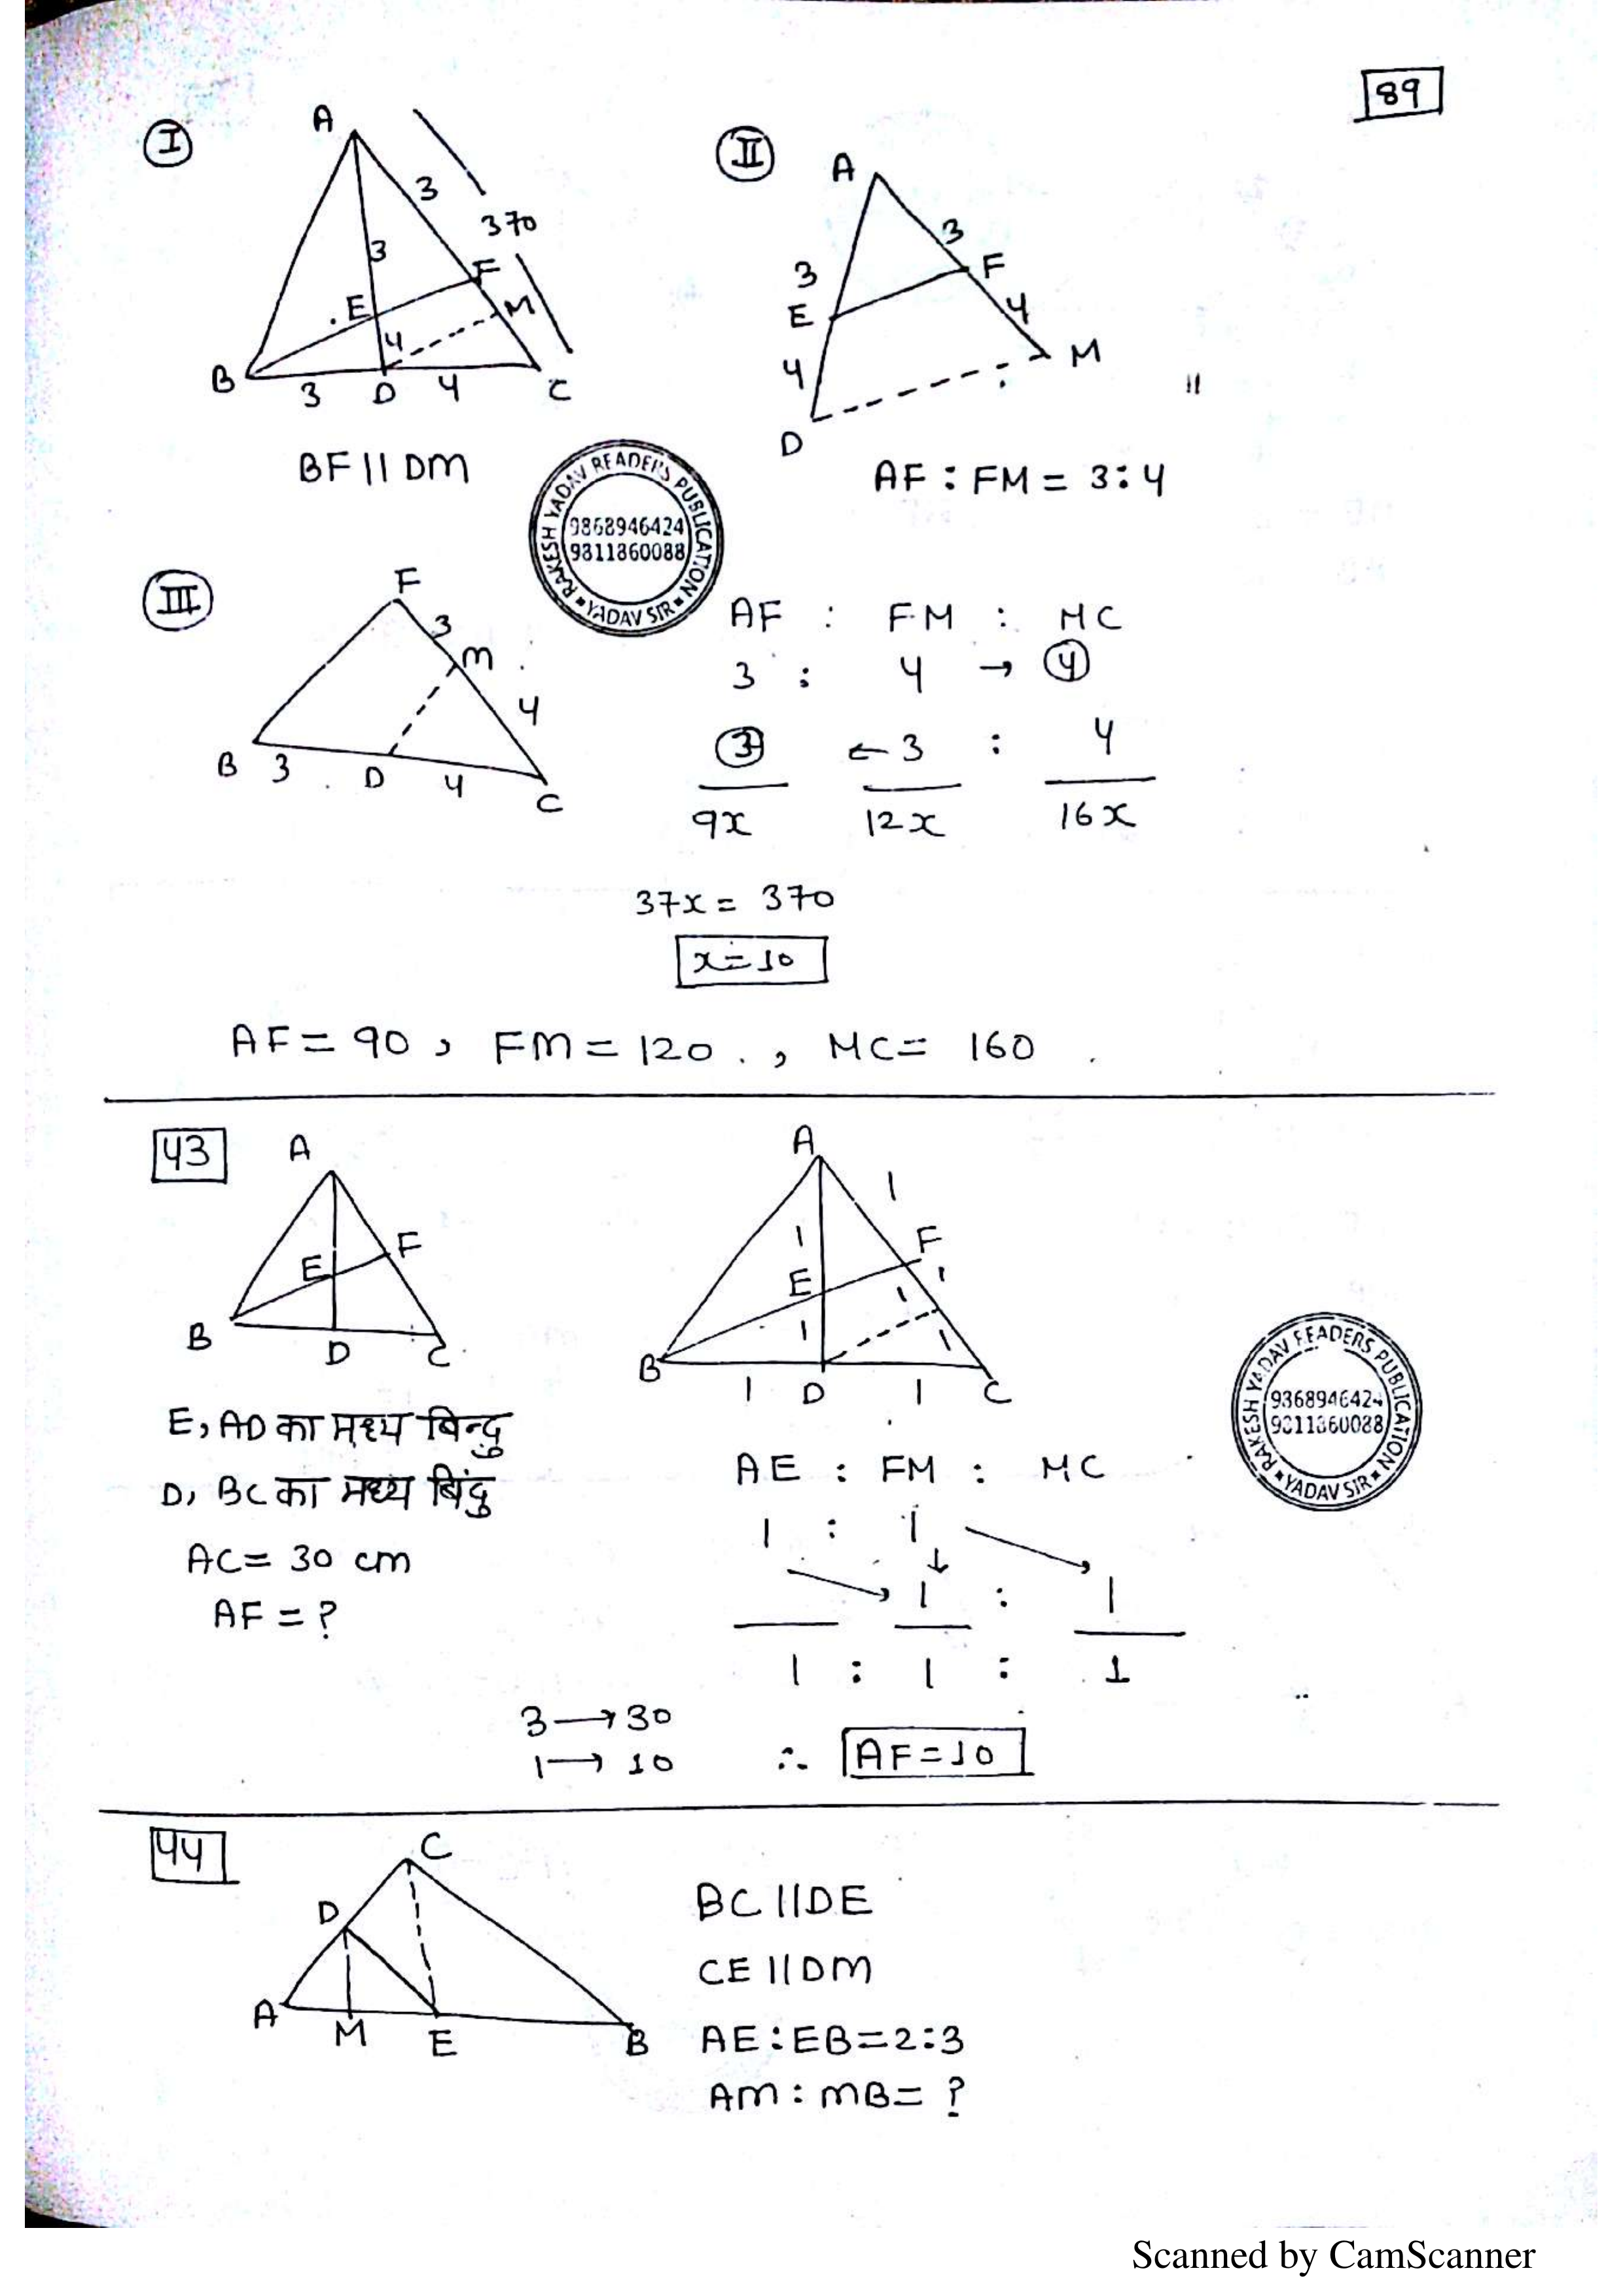 89
I
A
3
370
3
F
E
M
4
B 3 D 4 C
BF || DM
II
A
3
F
3
E
4
4
M
D
AF : FM = 3:4
RAKESH YADAV READERS PUBLICATION
9868946424
9811860088
YADAV SIR
III
F
3
M
4
B 3 D 4 C
AF : FM : MC
3 : 4 → 4
3 ← 3 : 4
9x 12x 16x
37x = 370
x=10
AF = 90, FM = 120., MC = 160.
43
A
F
E
B
D
C
A
1
1
F
E
1
1
1
1
B 1 D 1 C
E, AD का मध्य बिन्दु
D, BC का मध्य बिंदु
AC = 30 cm
AF = ?
AE : FM : MC
1 : 1
1 : 1
1 : 1 : 1
RAKESH YADAV READERS PUBLICATION
YADAV SIR
3 → 30
1 → 10 ∴ AF=10
44
C
D
A
M
E
B
BC || DE
CE || DM
AE : EB = 2:3
AM : MB = ?
Scanned by CamScanner